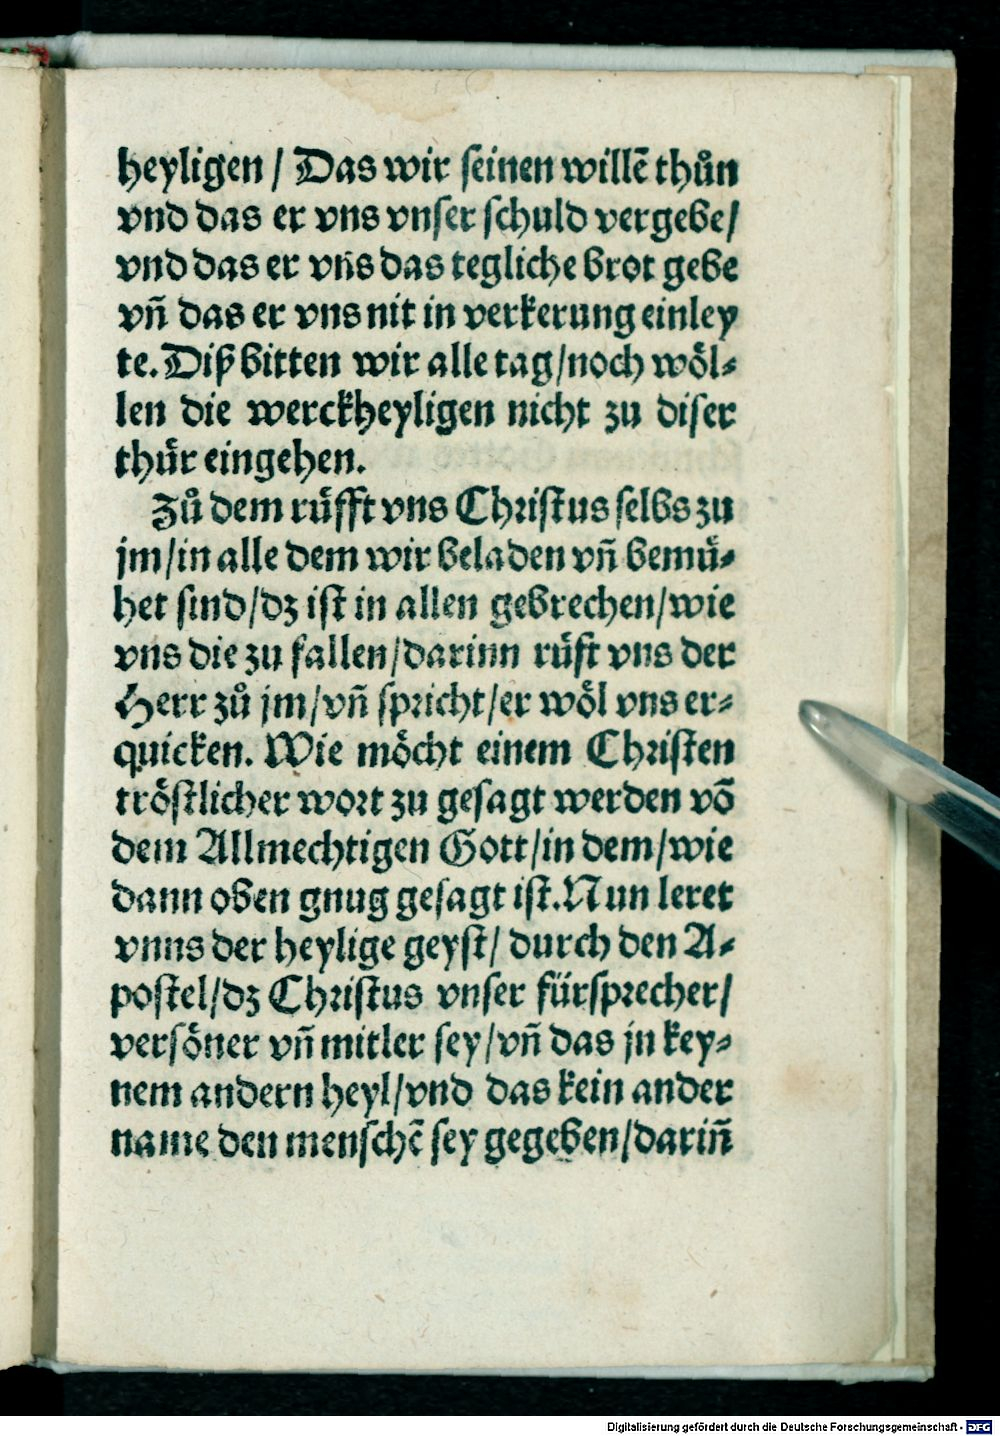 heyligen / Das wir seinen willē thůn
vnd das er vns vnser schuld vergebe/
vnd das er vns das tegliche brot gebe
vñ das er vns nit in verkerung einley
te. Diß bitten wir alle tag/noch wöl-
len die werckheyligen nicht zu diser
thür eingehen.
Zů dem rüfft vns Christus selbs zu
jm/in alle dem wir beladen vñ bemü-
het sind/dz ist in allen gebrechen/wie
vns die zu fallen/darinn rüft vns der
Herr zů jm/vñ spricht/er wöl vns er-
quicken. Wie möcht einem Christen
tröstlicher wort zu gesagt werden vō
dem Allmechtigen Gott/in dem/wie
dann oben gnug gesagt ist. Nun leret
vnns der heylige geyst/ durch den A-
postel/dz Christus vnser fürsprecher/
versöner vñ mitler sey/vñ das jn key-
nem andern heyl/vnd das kein ander
name den menschē sey gegeben/dariñ
Digitalisierung gefördert durch die Deutsche Forschungsgemeinschaft - DFG